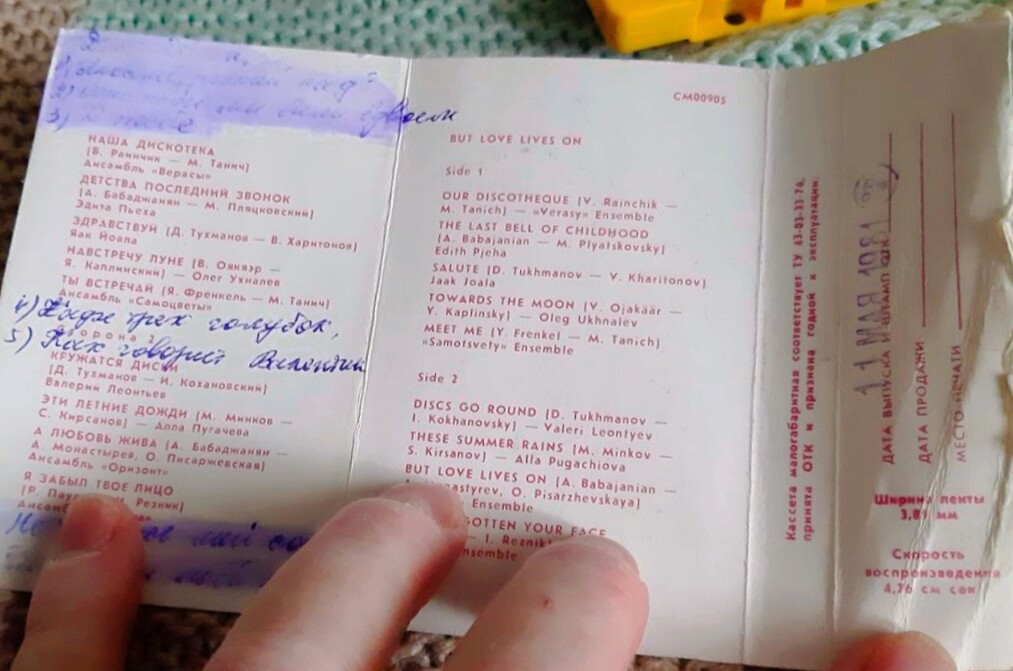 3)
НАША ДИСКОТЕКА
(В. Раинчик — М. Танич)
Ансамбль «Верасы»
ДЕТСТВА ПОСЛЕДНИЙ ЗВОНОК
(А. Бабаджанян — М. Пляцковский)
Эдита Пьеха
ЗДРАВСТВУЙ (Д. Тухманов — В. Харитонов)
Яак Йоала
НАВСТРЕЧУ ЛУНЕ (В. Оякяэр —
Я. Каплинский) — Олег Ухналев
ТЫ ВСТРЕЧАЙ (Я. Френкель — М. Танич)
Ансамбль «Самоцветы»
4) голубок,
Сторона 2
5) Как говорит
КРУЖАТСЯ ДИСКИ
(Д. Тухманов — И. Кохановский)
Валерий Леонтьев
ЭТИ ЛЕТНИЕ ДОЖДИ (М. Минков —
С. Кирсанов) — Алла Пугачева
А ЛЮБОВЬ ЖИВА (А. Бабаджанян —
А. Монастырев, О. Писаржевская)
Ансамбль «Оризонт»
Я ЗАБЫЛ ТВОЕ ЛИЦО
Резник)
СМ00905
BUT LOVE LIVES ON
Side 1
OUR DISCOTHEQUE (V. Rainchik —
M. Tanich) — «Verasy» Ensemble
THE LAST BELL OF CHILDHOOD
(A. Babajanian — M. Plyatskovsky)
Edith Pjeha
SALUTE (D. Tukhmanov — V. Kharitonov)
Jaak Joala
TOWARDS THE MOON (V. Ojakäär —
V. Kaplinsky) — Oleg Ukhnalev
MEET ME (Y. Frenkel — M. Tanich)
«Samotsvety» Ensemble
Side 2
DISCS GO ROUND (D. Tukhmanov —
I. Kokhanovsky) — Valeri Leontyev
THESE SUMMER RAINS (M. Minkov —
S. Kirsanov) — Alla Pugachiova
BUT LOVE LIVES ON (A. Babajanian —
O. Pisarzhevskaya)
Ensemble
YOUR FACE
Кассета малогабаритная соответствует ТУ 43-03-33-76,
принята ОТК и признана годной к эксплуатации
11 МАЯ 1981
ДАТА ВЫПУСКА И ШТАМП ОТК
ДАТА ПРОДАЖИ
МЕСТО ПЕЧАТИ
Ширина ленты
3,81 мм
Скорость
воспроизведения
4,76 см сек